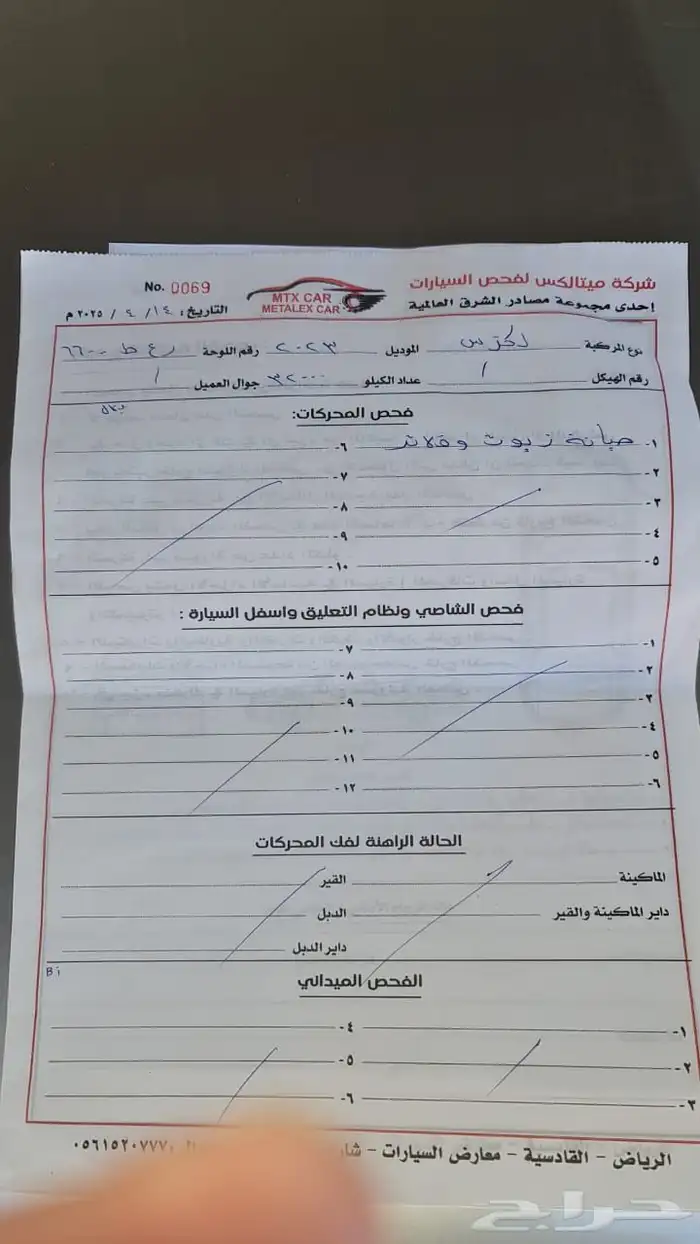 شركة ميتالكس لفحص السيارات
إحدى مجموعة مصادر الشرق العالمية
MTX CAR
METALEX CAR
No. 0069
التاريخ: ١٤ / ٤ / ٢٠٢٥ م
نوع المركبة لكزس الموديل ٢٠٢٣ رقم اللوحة ر ع ط ٦٦٠٠
رقم الهيكل / عداد الكيلو ٣٢٠٠٠ جوال العميل /
فحص المحركات:
١- صيانة زيوت وفلاتر ٦-
٢- ٧-
٣- ٨-
٤- ٩-
٥- ١٠-
فحص الشاصي ونظام التعليق واسفل السيارة :
١- ٧-
٢- ٨-
٣- ٩-
٤- ١٠-
٥- ١١-
٦- ١٢-
الحالة الراهنة لفك المحركات
الماكينة القير
داير الماكينة والقير الدبل
داير الدبل
الفحص الميداني
١- ٤-
٢- ٥-
٣- ٦-
الرياض - القادسية - معارض السيارات - ٠٥٦١٥٢٠٧٧٧
حراج